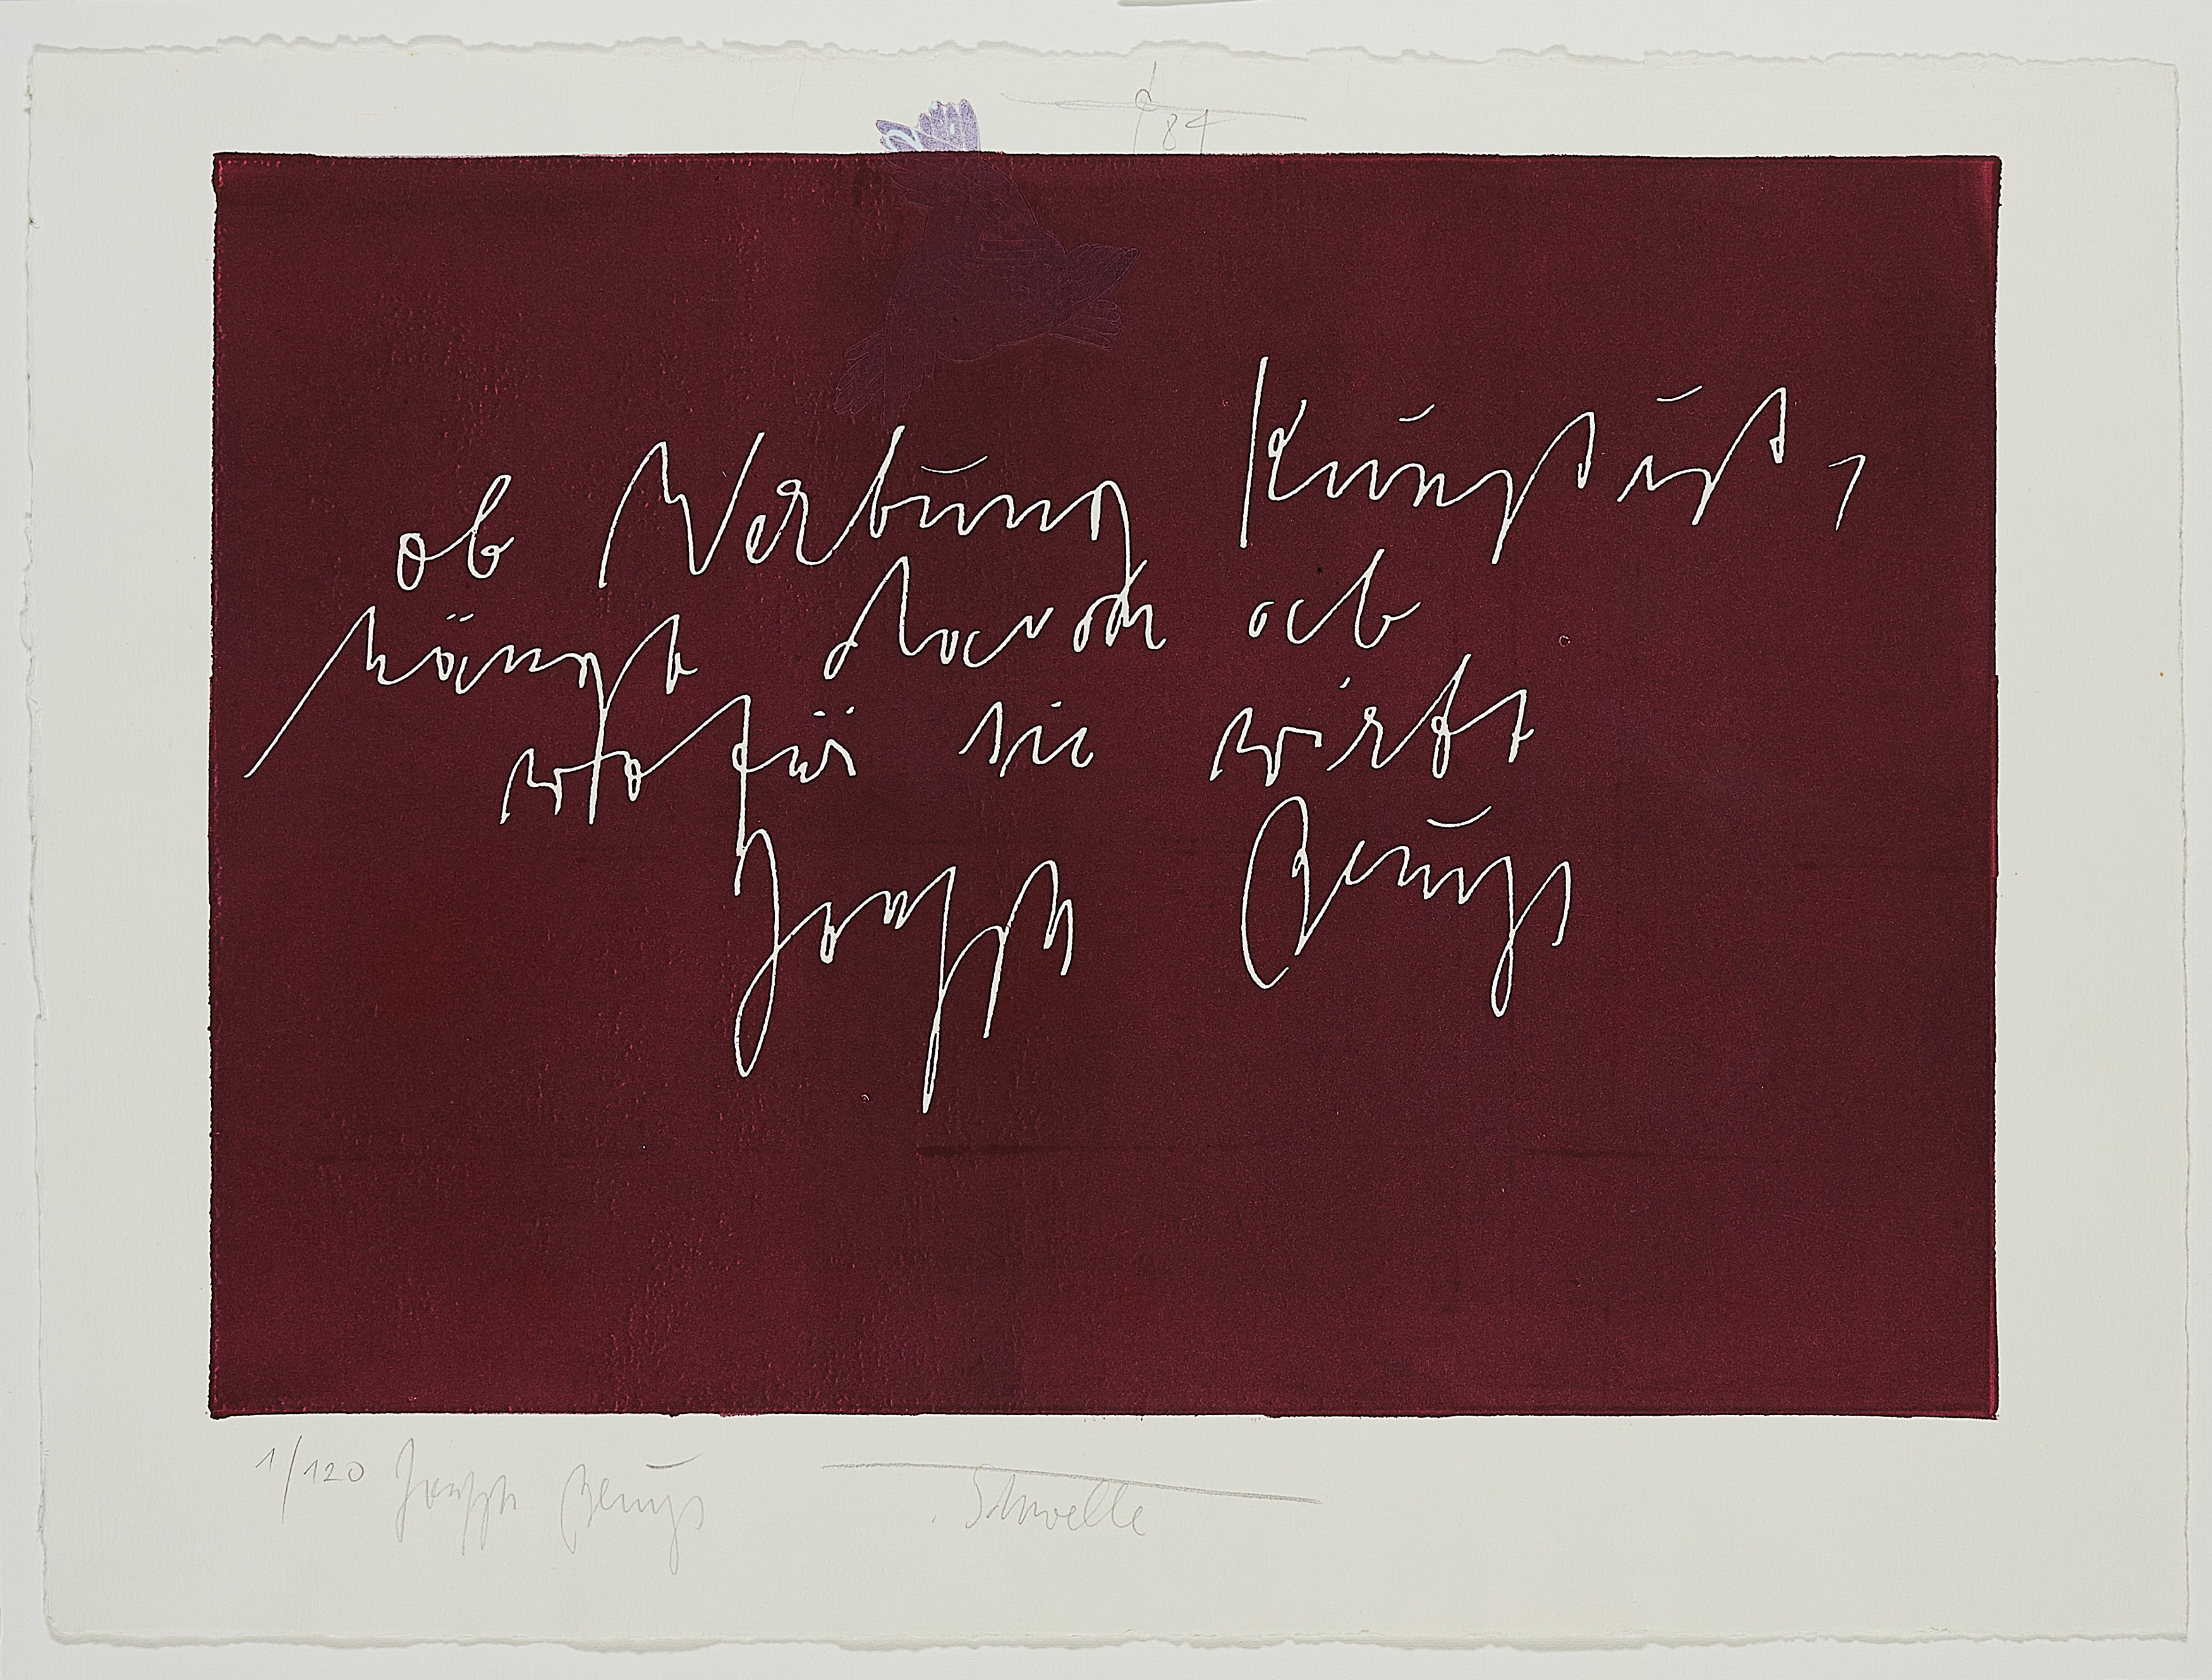 84
ob Werbung Kunst ist,
hängt davon ab
wofür sie wirbt
Joseph Beuys
1/120 Joseph Beuys Schwelle